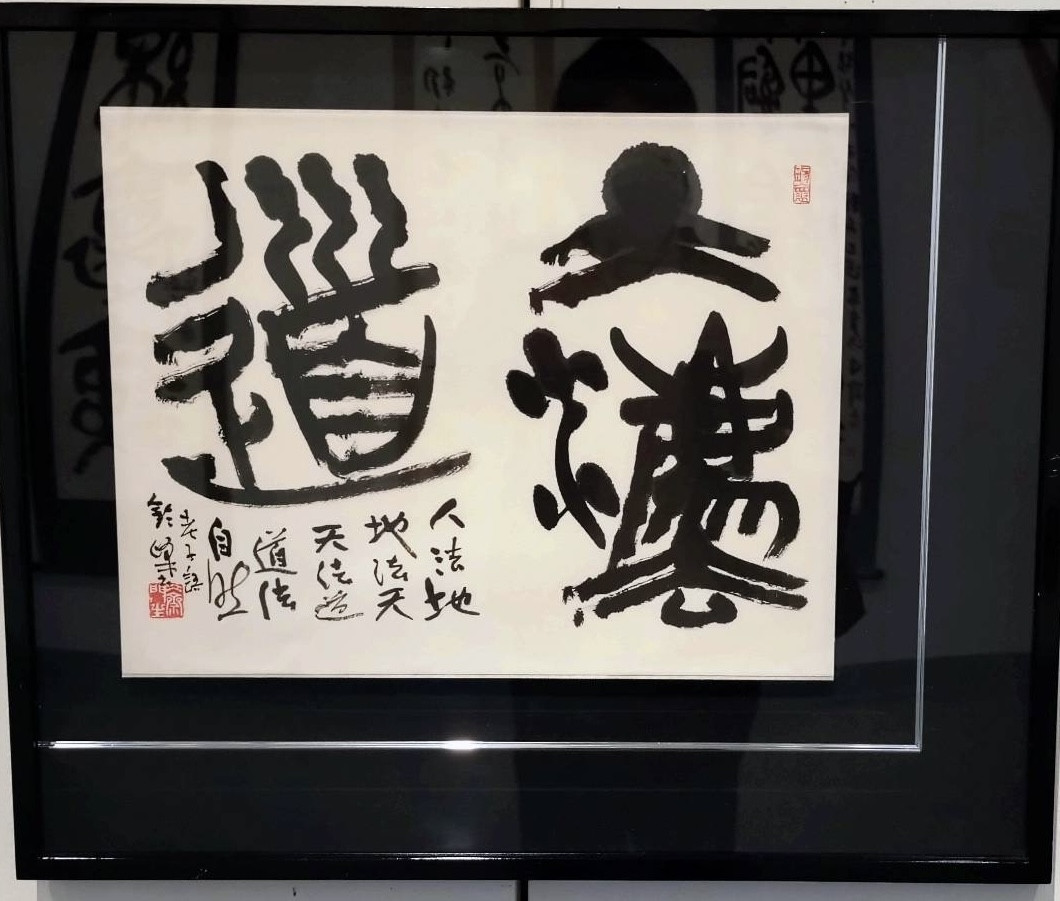 天灋
道
人法地
地法天
天法道
道法
自然
老子語